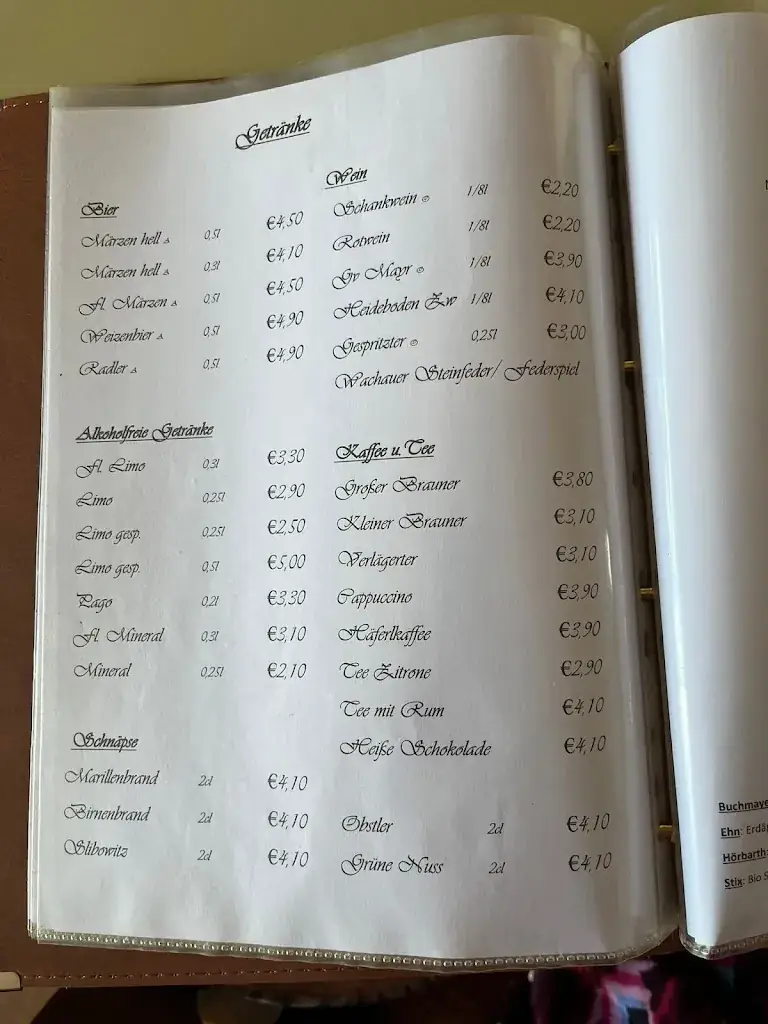 Getränke
Bier
Märzen hell A 0,5l €4,50
Märzen hell A 0,3l €4,10
Fl. Märzen A 0,5l €4,50
Weizenbier A 0,5l €4,90
Radler A 0,5l €4,90
Alkoholfreie Getränke
Fl. Limo 0,3l €3,30
Limo 0,25l €2,90
Limo gesp. 0,25l €2,50
Limo gesp. 0,5l €5,00
Pago 0,2l €3,30
Fl. Mineral 0,3l €3,10
Mineral 0,25l €2,10
Schnäpse
Marillenbrand 2cl €4,10
Birnenbrand 2cl €4,10
Slibowitz 2cl €4,10
Wein
Schankwein O 1/8l €2,20
Rotwein 1/8l €2,20
Gv Mayr O 1/8l €3,90
Heideboden Zw 1/8l €4,10
Gespritzter O 0,25l €3,00
Wachauer Steinfeder/ Federspiel
Kaffee u. Tee
Großer Brauner €3,80
Kleiner Brauner €3,10
Verlägerter €3,10
Cappuccino €3,90
Häferlkaffee €3,90
Tee Zitrone €2,90
Tee mit Rum €4,10
Heiße Schokolade €4,10
Obstler 2cl €4,10
Grüne Nuss 2cl €4,10
Buchmaye
Ehn: Erdäp
Hörbarth:
Stix: Bio S